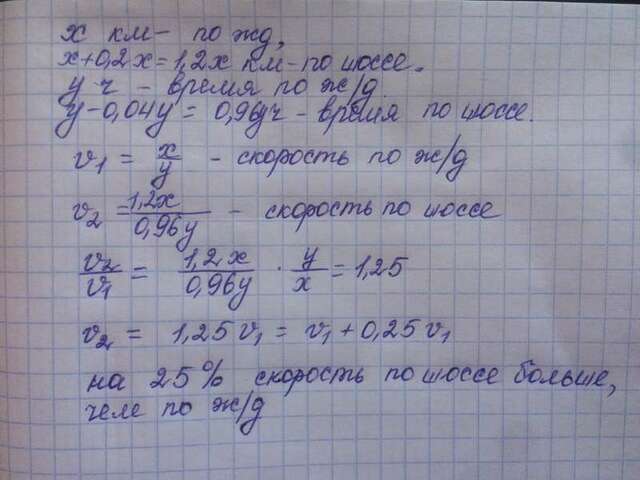 x км - по жд,
x+0,2x=1,2x км-по шоссе.
y ч - время по ж/д.
y-0,04y = 0,96y ч - время по шоссе.
v₁ = x/y - скорость по ж/д
v₂ = 1,2x/0,96y - скорость по шоссе
v₂/v₁ = 1,2x/0,96y · y/x = 1,25
v₂ = 1,25v₁ = v₁ + 0,25v₁
на 25% скорость по шоссе больше,
чем по ж/д